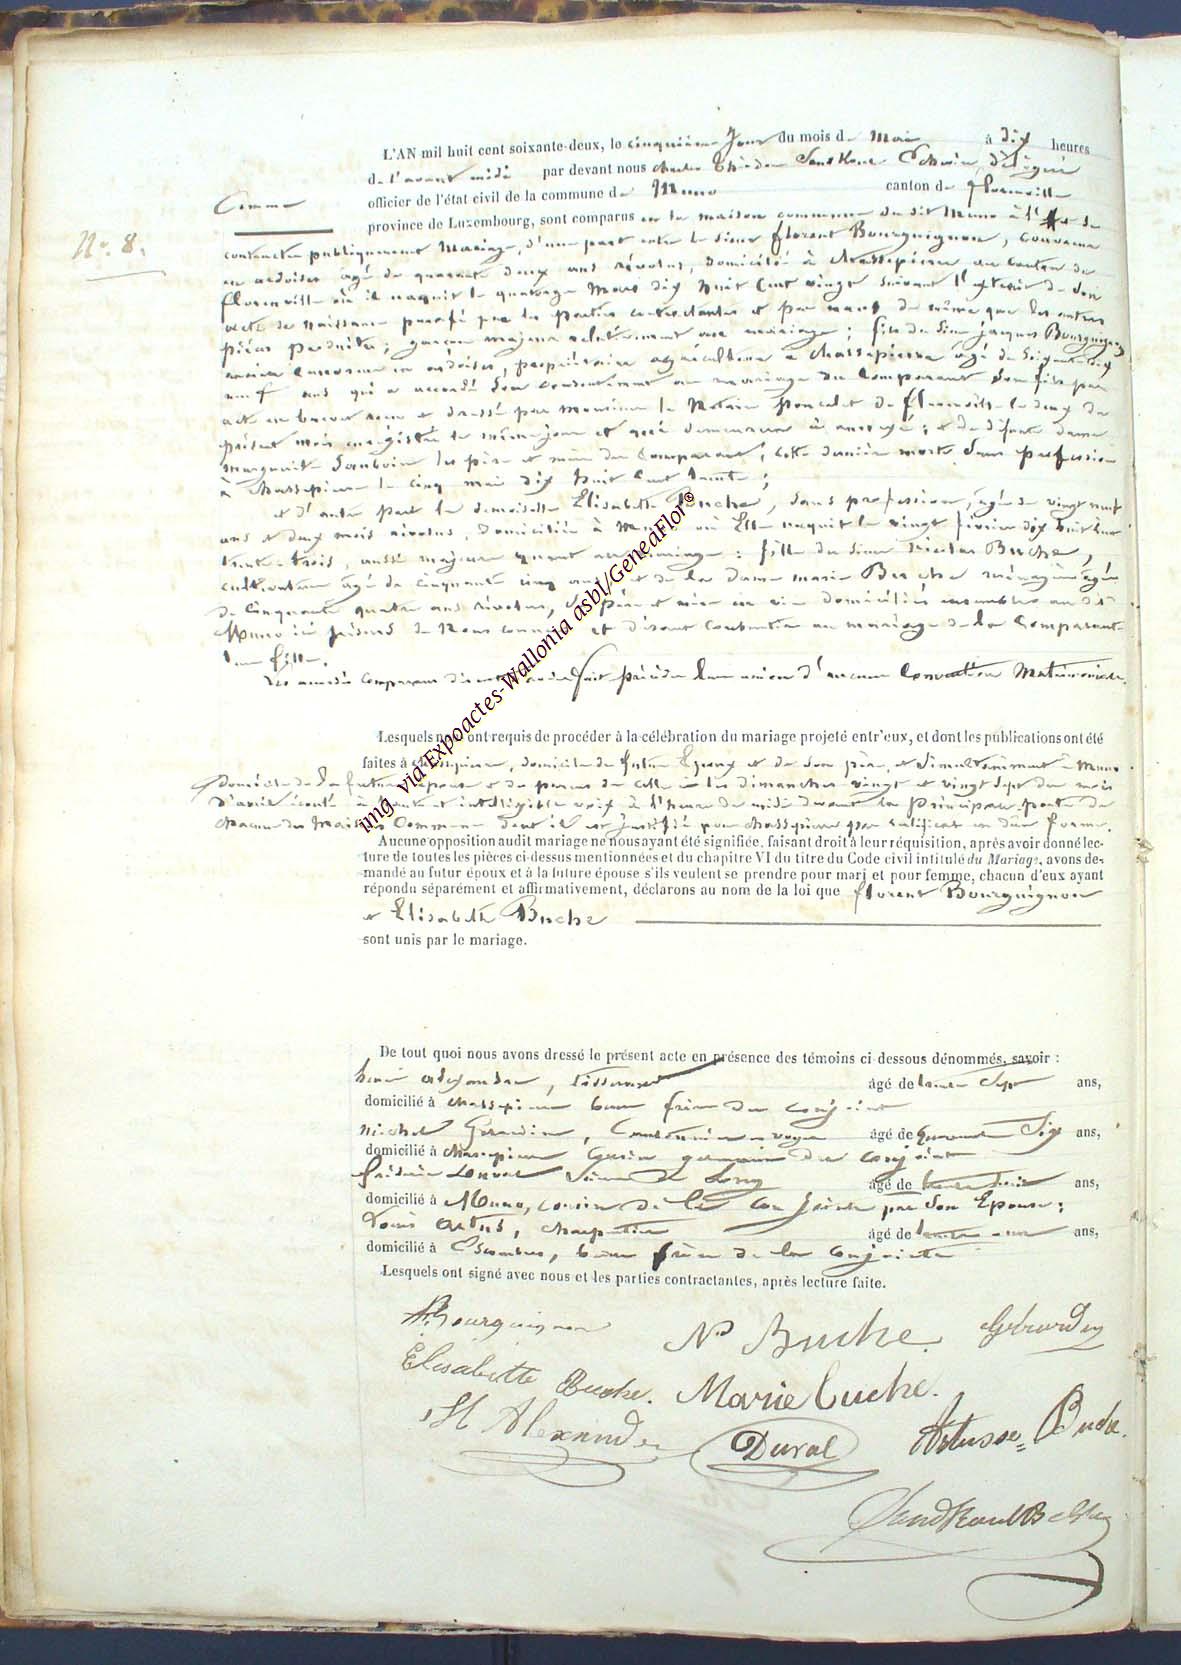 L'AN mil huit cent soixante-deux, le cinquième jour du mois de Mai à dix heures
de l'avant midi par devant nous Charles Echevin délégué
officier de l'état civil de la commune de Muno canton de florenville
Commune
province de Luxembourg, sont comparus en la maison commune du dit Muno à l'effet de
N°. 8.
contracter publiquement Mariage, d'une part entre le sieur florent Bourguignon, Couvreur
en ardoises âgé de quarante deux ans révolus, domicilié à Chassepierre au canton de
florenville où il naquit le quatorze Mars dix huit cent vingt suivant l'extrait de son
acte de naissance parafé par les parties contractantes et par nous de même que les autres
pièces produites; garçon majeur relativement au mariage; fils du sieur jacques Bourguignon
ancien Couvreur en ardoises, propriétaire agriculteur à Chassepierre âgé de soixante dix
neuf ans qui a accordé son consentement au mariage du Comparant son fils par
acte en brevet reçu et dressé par Monsieur le Notaire Poncelet de florenville le deux du
présent mois enregistré le même jour et qui demeurera ci annexé; et de défunte dame
Marguerite les père et mère du Comparant, cette dernière morte sans profession
à Chassepierre le cinq mai dix huit cent trente;
et d'autre part la demoiselle Elisabette Buche, sans profession, âgée de vingt neuf
ans et deux mois révolus, domiciliée à Muno où Elle naquit le vingt février dix huit cent
trente-trois, aussi majeure quant au mariage: fille du sieur Nicolas Buche,
cultivateur âgé de cinquante cinq ans et de la dame marie Buche ménagère âgée
de cinquante quatre ans révolus, ses père et mère en vie domiciliés ensembles au dit
Muno ici présents de Nous connus et disant consentir au mariage de la Comparante
leur fille.
Les amodiés Comparans disent avoir fait précéder leur union d'aucune Convention Matrimoniale.
Lesquels nous ont requis de procéder à la célébration du mariage projeté entr'eux, et dont les publications ont été
faites à Chassepierre, domicile du futur Epoux et de son père, et simultanément à Muno
domicile de la future épouse et des parens de celle ci les dimanches vingt et vingt sept du mois
d'avril écoulé à haute et intelligible voix à l'heure de midi devant la principale porte de
chacune des Maisons Commune dont il est justifié pour Chassepierre par certificat en due forme.
Aucune opposition audit mariage ne nous ayant été signifiée, faisant droit à leur réquisition, après avoir donné lec-
ture de toutes les pièces ci-dessus mentionnées et du chapitre VI du titre du Code civil intitulé du Mariage, avons de-
mandé au futur époux et à la future épouse s'ils veulent se prendre pour mari et pour femme, chacun d'eux ayant
répondu séparément et affirmativement, déclarons au nom de la loi que florent Bourguignon
et Elisabette Buche
sont unis par le mariage.
De tout quoi nous avons dressé le présent acte en présence des témoins ci-dessous dénommés, savoir :
henri alexandre, tisserand âgé de trente sept ans,
domicilié à Chassepierre beau frère du conjoint
michel Gérardin, Cantonnier âgé de quarante six ans,
domicilié à Chassepierre cousin germain du conjoint
âgé de trente trois ans,
domicilié à Muno, cousin de la conjointe par son Epouse;
Louis charpentier âgé de trente ans,
domicilié à Escombres, beau frère de la conjointe
Lesquels ont signé avec nous et les parties contractantes, après lecture faite.
Bourguignon N Buche. Gérardin
Elisabette Buche. Marie Buche.
H Alexandre Duval Artusse = Buche.
img via Expoactes-Wallonia asbl/GeneaFlor®